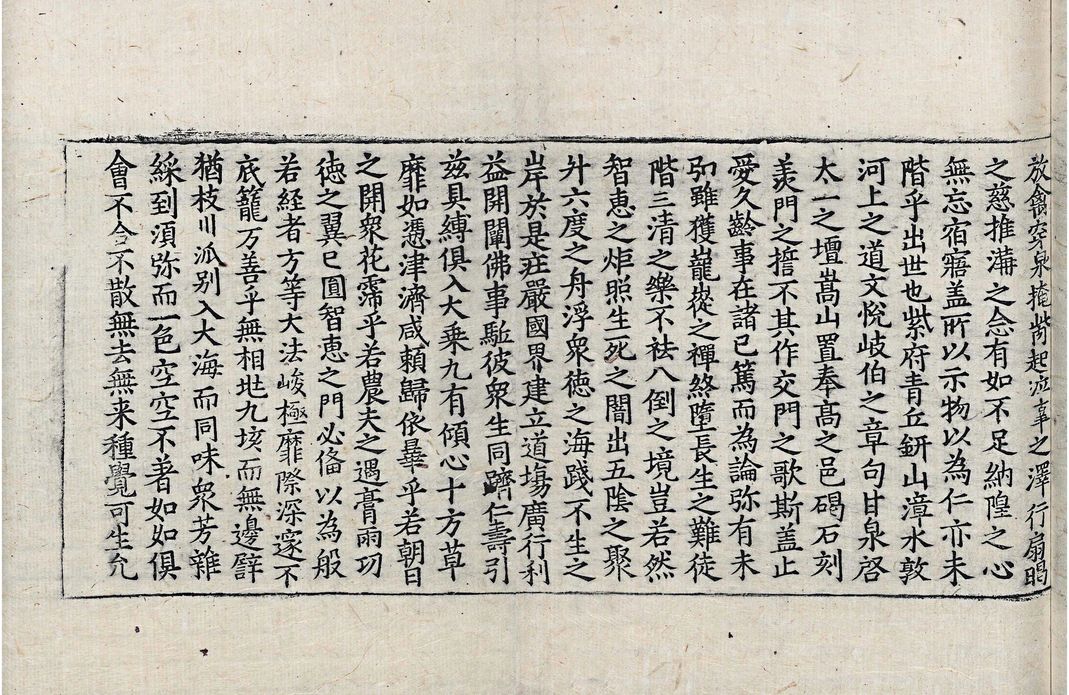 放禽穿泉掩骼起泣辜之澤行扇暍
之慈推溝之念有如不足納隍之心
無忘宿寤盖所以示物以為仁亦未
階乎出世也紫府青丘鈃山漳水敦
河上之道文悅岐伯之章句甘泉啓
太一之壇嵩山置奉髙之邑碣石刻
羡門之誓不其作交門之歌斯盖止
愛久齡事在諸已篤而為論弥有未
弘雖獲巃嵸之禪終墮長生之難徒
階三清之樂不祛八倒之境豈若然
智恵之炬照生死之闇出五陰之聚
升六度之舟浮衆徳之海踐不生之
岸於是莊嚴國界建立道場廣行利
益開闡佛事駈彼衆生同躋仁壽引
兹具縛俱入大乗九有傾心十方草
靡如憑津濟咸頼歸依暴乎若朝日
之開衆花霈乎若農夫之遇膏雨功
徳之翼已圓智恵之門必俻以為般
若経者方等大法峻極靡際深邃不
底籠万善乎無相圵九垓而無邊譬
猶枝川泒别入大海而同味衆芳雜
綵到湏弥而一色空空不著如如俱
會不合不散無去無来種覺可生允